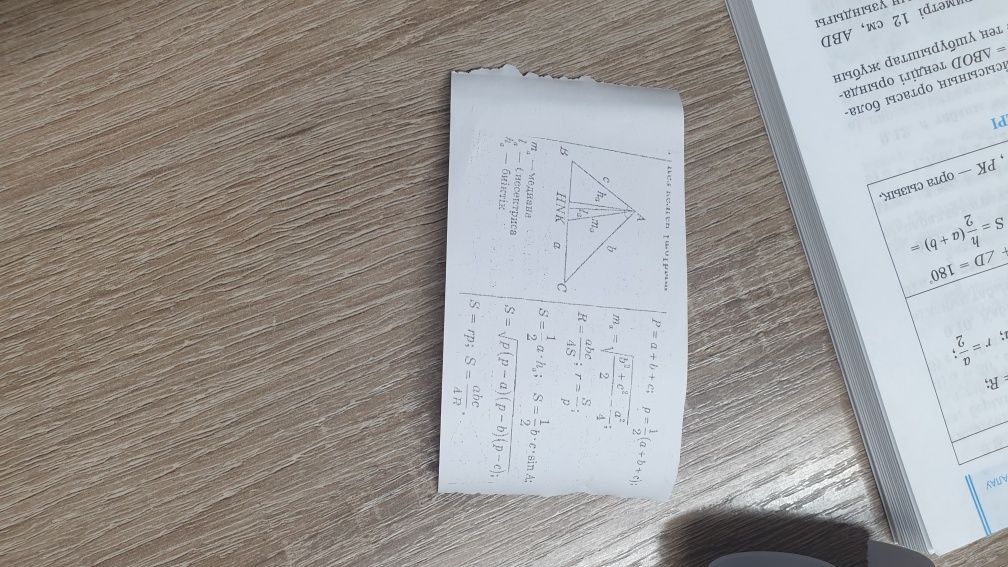 A
c
b
hₐ
lₐ
mₐ
B
HNK
a
C
mₐ — медиана
lₐ — биссектриса
hₐ — биіктік
P = a + b + c; p = 1/2(a + b + c);
mₐ = √((b² + c²)/2 − a²/4);
R = abc/4S; r = S/p;
S = 1/2 a · hₐ; S = 1/2 b · c · sin A;
S = √(p(p − a)(p − b)(p − c));
S = rp; S = abc/4R.
∠D = 180°
S = h/2 (a + b) =
, PK — орта сызық.
r = a/2;
= R;
ортасы бола-
= ΔBOD теңдігі орында-
тең үшбұрыштар жұбын
12 см, ABD
ұзындығы